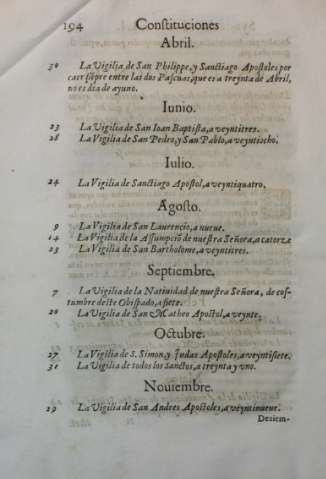 194 Constituciones
Abril.
30 La Vigilia de San Philippe, y Sanctiago Apostoles por
caer siẽpre entre las dos Pascuas, que es a treynta de Abril,
no es dia de ayuno.
Iunio.
23 La Vigilia de San Ioan Baptista, a veyntitres.
28 La Vigilia de San Pedro, y San Pablo, a veyntiocho.
Iulio.
24 La Vigilia de Sanctiago Apostol, a veyntiquatro.
Agosto.
9 La Vigilia de San Laurencio, a nueue.
14 La Vigilia de la Assumpciõ de nuestra Señora, a catorze
23 La Vigilia de San Bartholome, a veyntitres.
Septiembre.
7 La Vigilia de la Natiuidad de nuestra Señora, de cos-
tumbre deste Obispado, a siete.
20 La Vigilia de San Matheo Apostol, a veynte.
Octubre.
27 La Vigilia de S. Simon, y Judas Apostoles, a veyntisiete.
31 La Vigilia de todos los Sanctos, a treynta y vno.
Nouiembre.
29 La Vigilia de San Andres Apostoles, a veyntinueue.
Deziem-